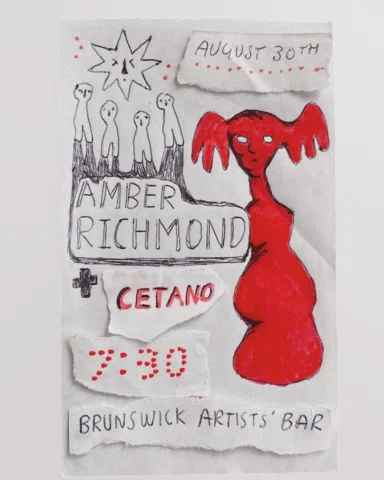 AUGUST 30TH
AMBER
RICHMOND
+ CETANO
7:30
BRUNSWICK ARTISTS' BAR